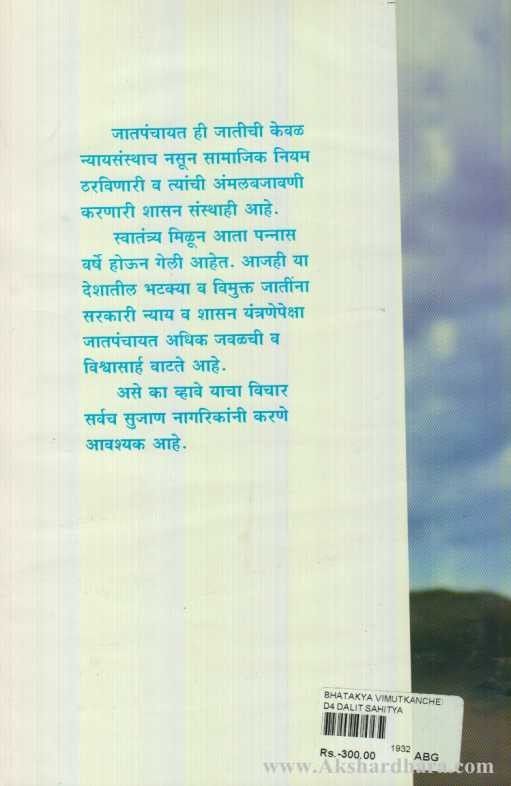 जातपंचायत ही जातीची केवळ
न्यायसंस्थाच नसून सामाजिक नियम
ठरविणारी व त्यांची अंमलबजावणी
करणारी शासन संस्थाही आहे.
स्वातंत्र्य मिळून आता पन्नास
वर्षे होऊन गेली आहेत. आजही या
देशातील भटक्या व विमुक्त जातींना
सरकारी न्याय व शासन यंत्रणेपेक्षा
जातपंचायत अधिक जवळची व
विश्वासार्ह वाटते आहे.
असे का व्हावे याचा विचार
सर्वच सुजाण नागरिकांनी करणे
आवश्यक आहे.
BHATAKYA VIMUTKANCHE
D4 DALIT SAHITYA
Rs.-300.00 1932 ABG
www.Akshardhara.com